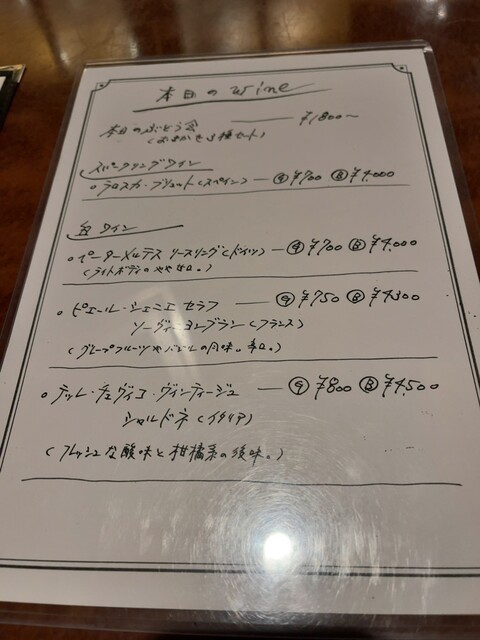 本日の wine
本日のぶどう会 ¥1,800〜
(おまかせ3種セット)
スパークリングワイン
。ラロスカ・ブリュット(スペイン) — Ⓖ ¥700 Ⓑ ¥4,000
白ワイン
。ピーターメルテス リースリング(ドイツ) — Ⓖ ¥700 Ⓑ ¥4,000
(ライトボディのやや甘口。)
。ピエール・シェニエ セラフ — Ⓖ ¥750 Ⓑ ¥4,300
ソーヴィニヨンブラン(フランス)
(グレープフルーツやバジルの風味。辛口。)
。テッレ・チェヴィコ・ヴィンテージュ — Ⓖ ¥800 Ⓑ ¥4,500
シャルドネ(イタリア)
(フレッシュな酸味と柑橘系の後味。)